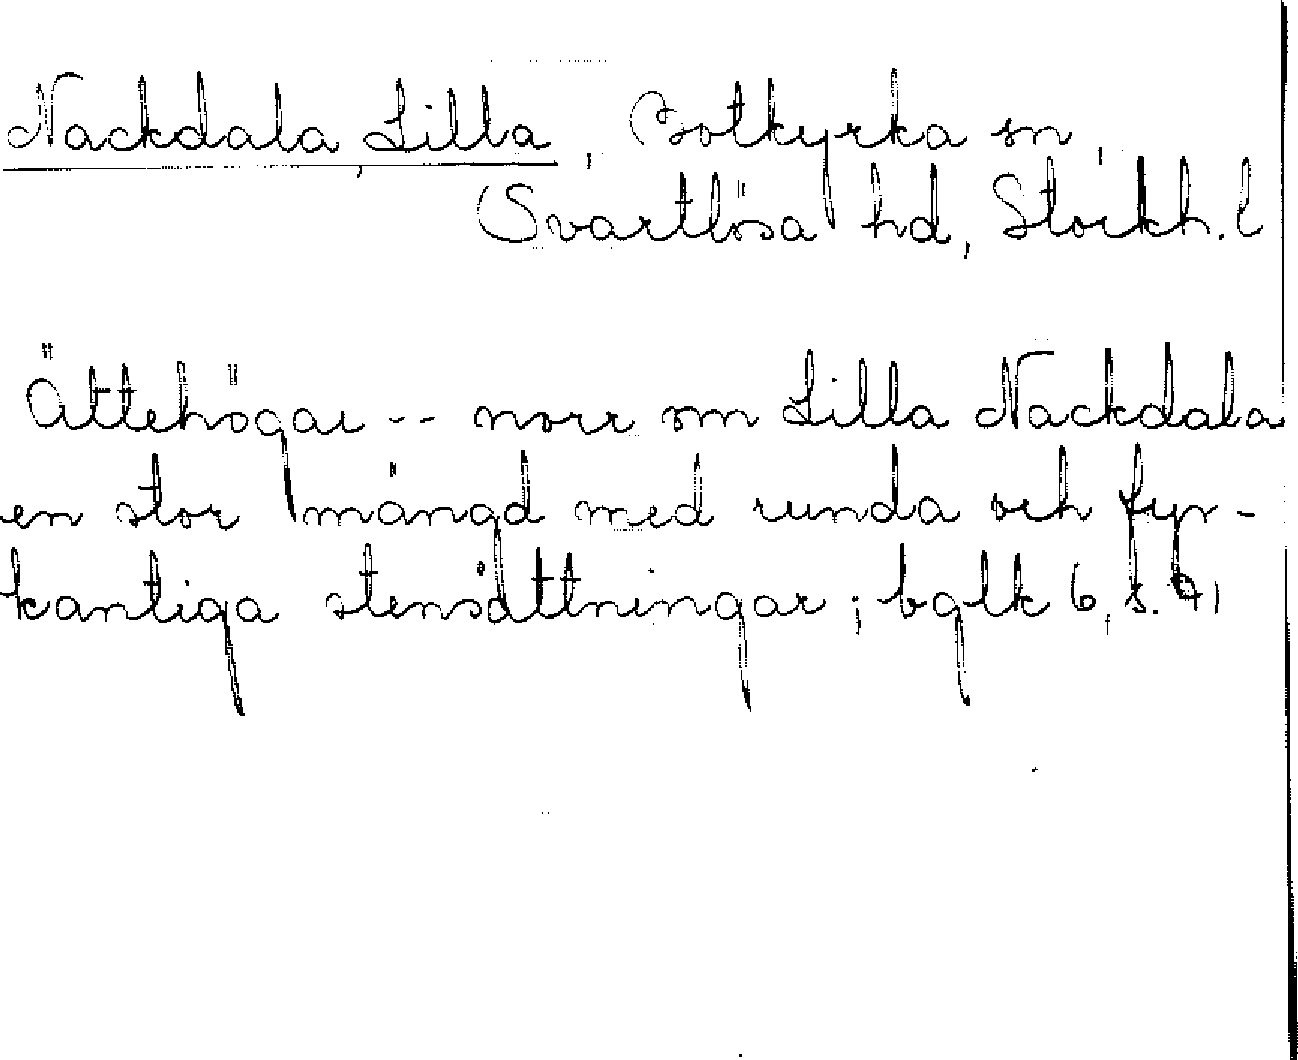 Nackdala, Lilla, Botkyrka sn,
Svartlösa hd, Stockh. l
Ättehögar -- norr om Lilla Nackdala
en stor mängd med runda och fyr-
kantiga stensättningar; bglk 6, s. 71